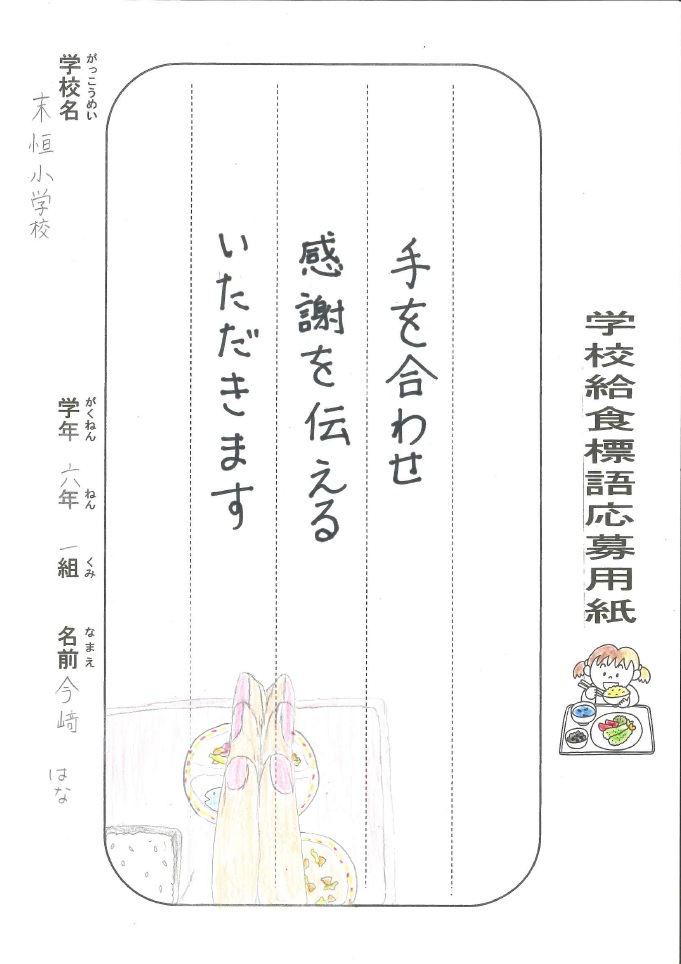 学校給食標語応募用紙
手を合わせ
感謝を伝える
いただきます
がっこうめい
学校名 末恒小学校
がくねん ねん くみ
学年 六年 一組
なまえ
名前 今﨑 はな